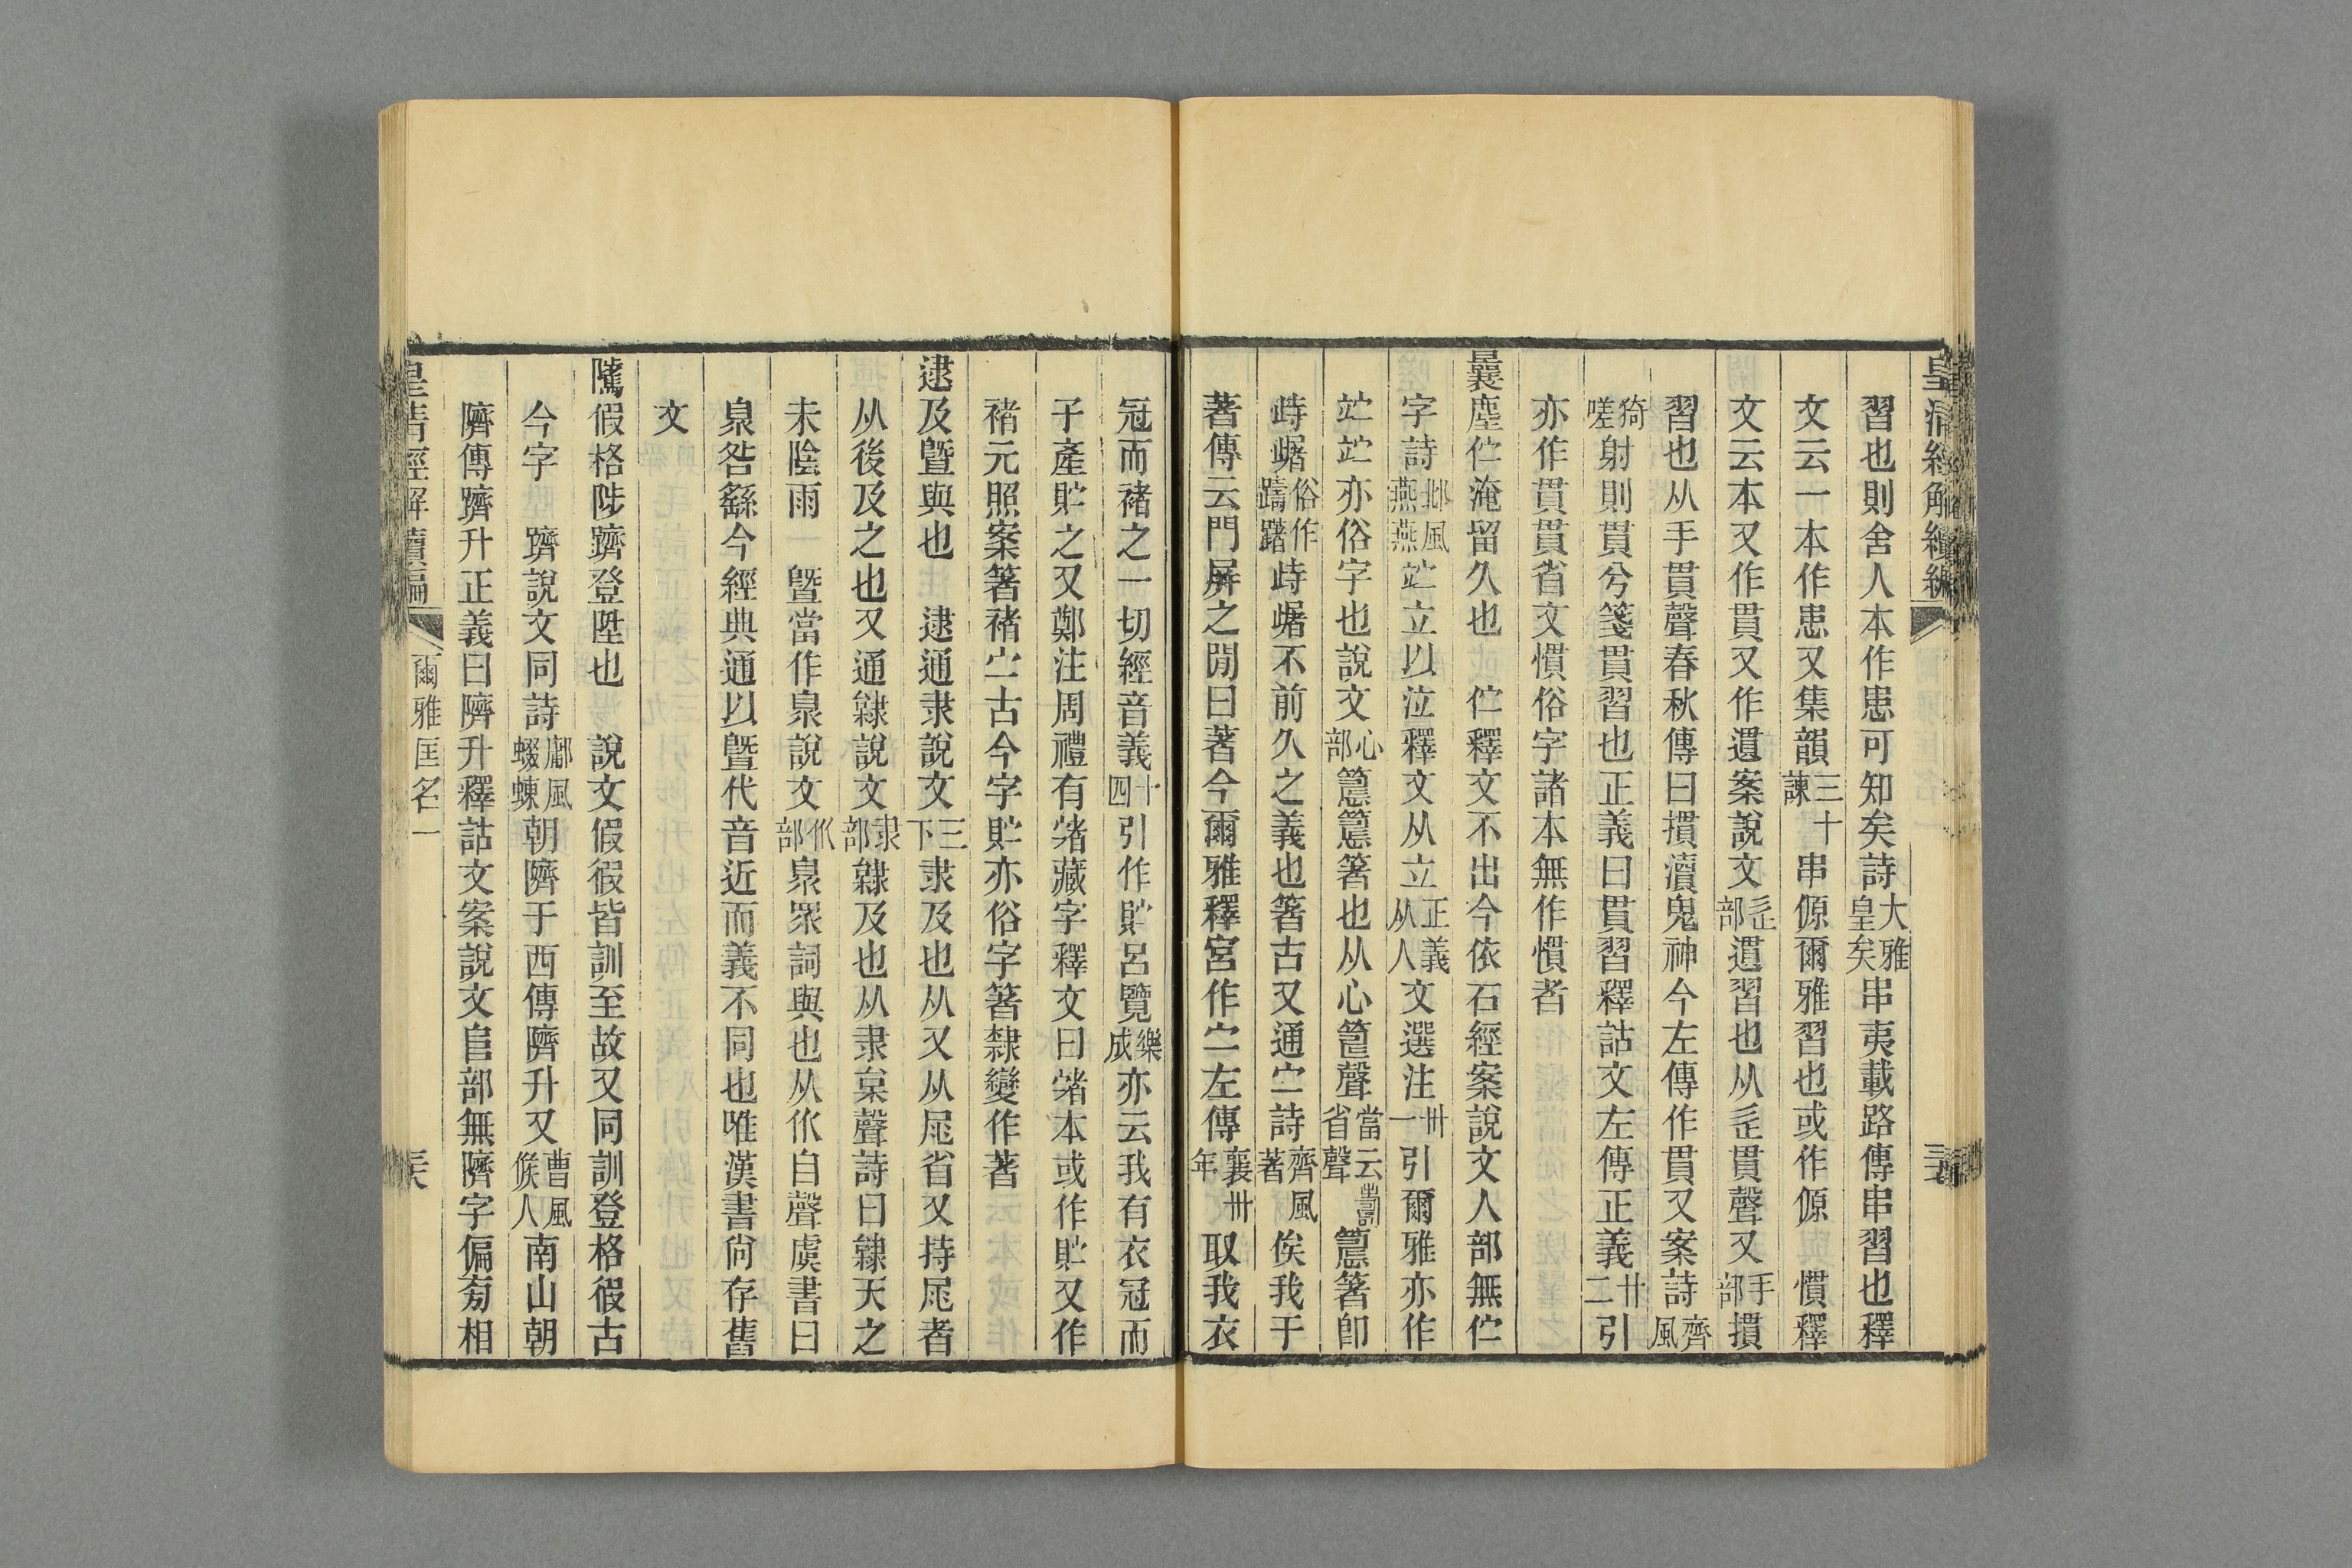 皇清經解續編
習也則舍人本作患可知矣詩大雅皇矣串夷載路傳串習也釋
文云一本作患又集韻三十諫串㥳爾雅習也或作㥳 慣釋
文云本又作貫又作遺案說文辵部遺習也从辵貫聲又手部摜
習也从手貫聲春秋傳曰摜瀆鬼神今左傳作貫又案詩齊風
猗嗟射則貫兮箋貫習也正義曰貫習釋詁文左傳正義廿二引
亦作貫貫省文慣俗字諸本無作慣者
曩塵佇淹留久也 佇釋文不出今依石經案說文人部無佇
字詩邶風燕燕竚立以泣釋文从立正義从人文選注卅一引爾雅亦作
竚竚亦俗字也說文心部𥳑𥳑箸也从心䈞聲當云𡔷省聲𥳑箸卽
峙𡼲俗作躊躇峙𡼲不前久之義也箸古又通宁詩齊風著俟我于
著傳云門屏之閒曰著今爾雅釋宮作宁左傳襄卅年取我衣
冠而褚之一切經音義十四引作貯呂覽樂成亦云我有衣冠而
子產貯之又鄭注周禮有㡯藏字釋文曰㡯本或作貯又作
褚元照案箸褚宁古今字貯亦俗字箸隸變作著
逮及曁與也 逮通隶說文三下隶及也从又从㞑省又持㞑者
从後及之也又通𨽿說文隶部𨽿及也从隶枲聲詩曰𨽿天之
未陰雨 曁當作臮說文㐺部臮眾詞與也从㐺自聲虞書曰
臮咎繇今經典通以曁代音近而義不同也唯漢書尙存舊
文
騭假格陟躋登陞也 說文假徦皆訓至故又同訓登格徦古
今字 躋說文同詩鄘風蝃蝀朝隮于西傳隮升又曹風候人南山朝
隮傳躋升正義曰隮升釋詁文案說文𨸏部無隮字偏旁相
皇清經解續編 爾雅匡名一